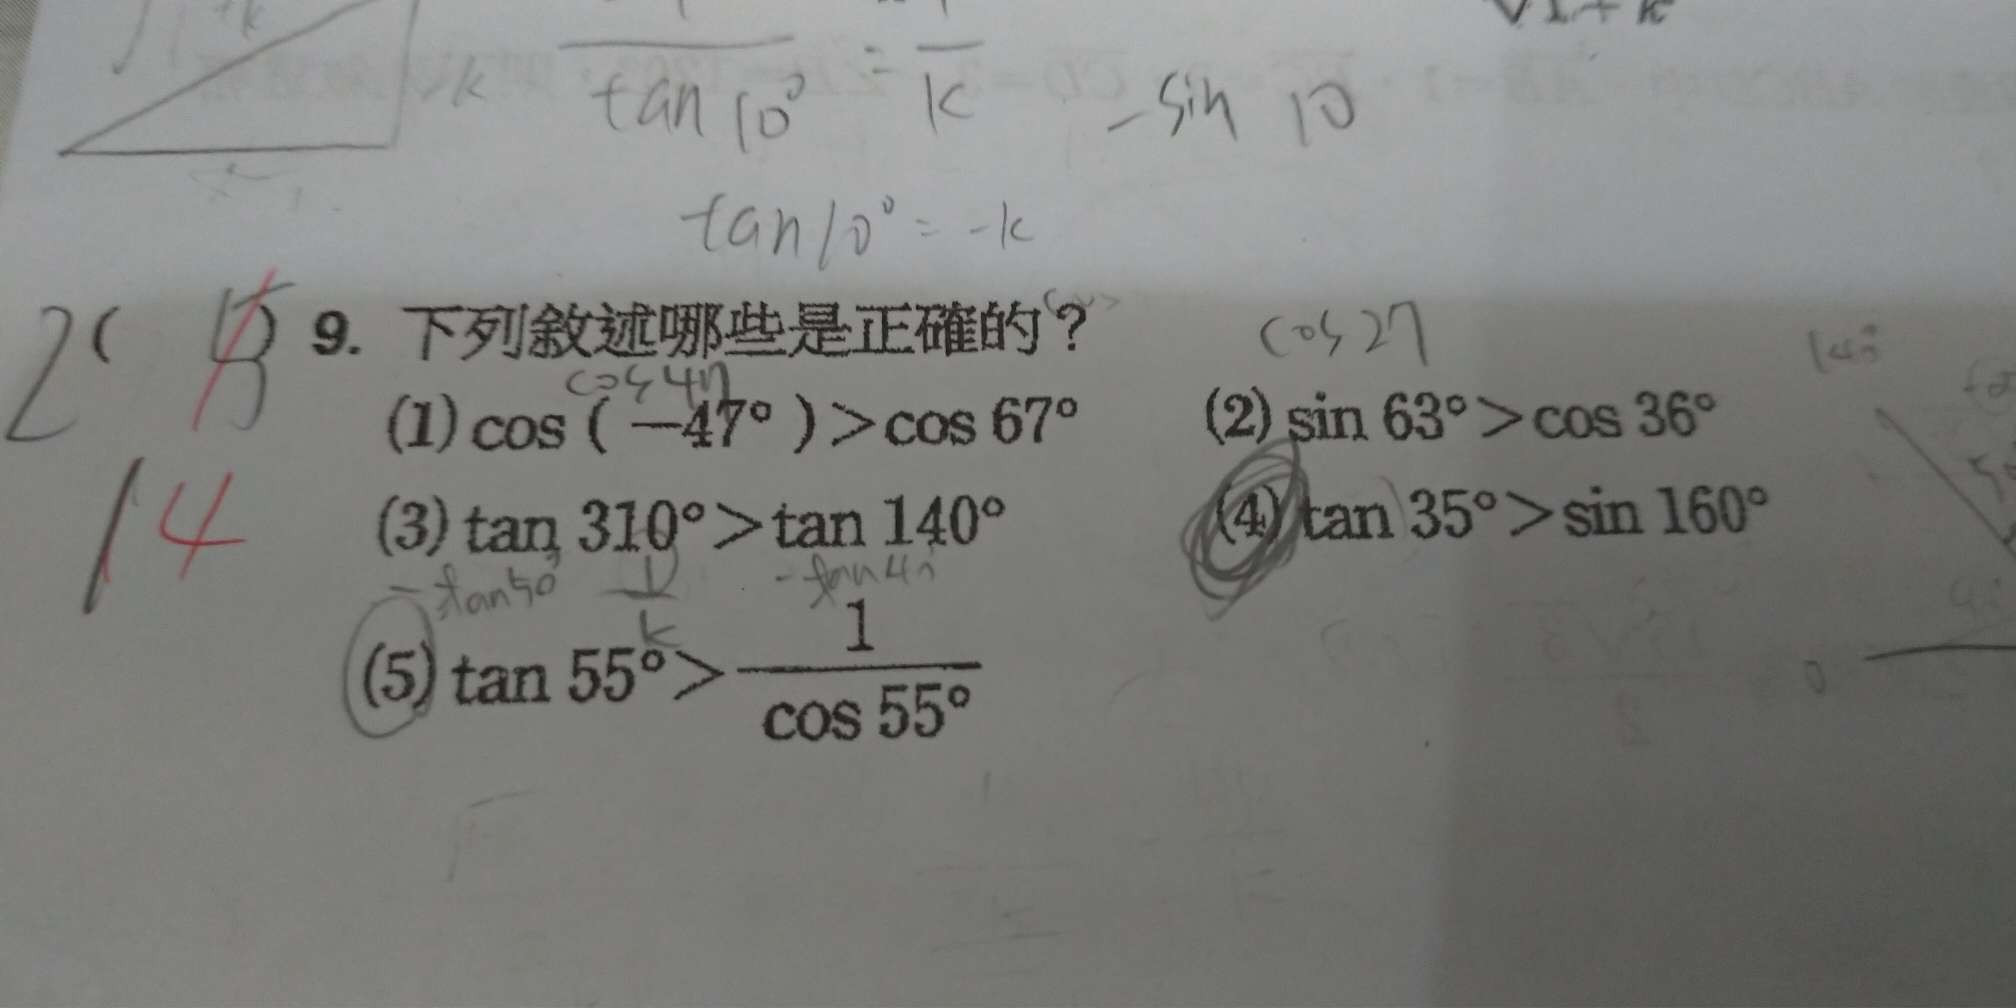 k
tan 10° = k
- sin 10
tan 10° = -k
9. 下列敘述哪些是正確的?
cos 47
cos 27
(1) cos ( −47° ) > cos 67°
(2) sin 63° > cos 36°
(3) tan 310° > tan 140°
(4) tan 35° > sin 160°
- tan 50°
k
- tan 40
14
(5) tan 55° > 1 / cos 55°